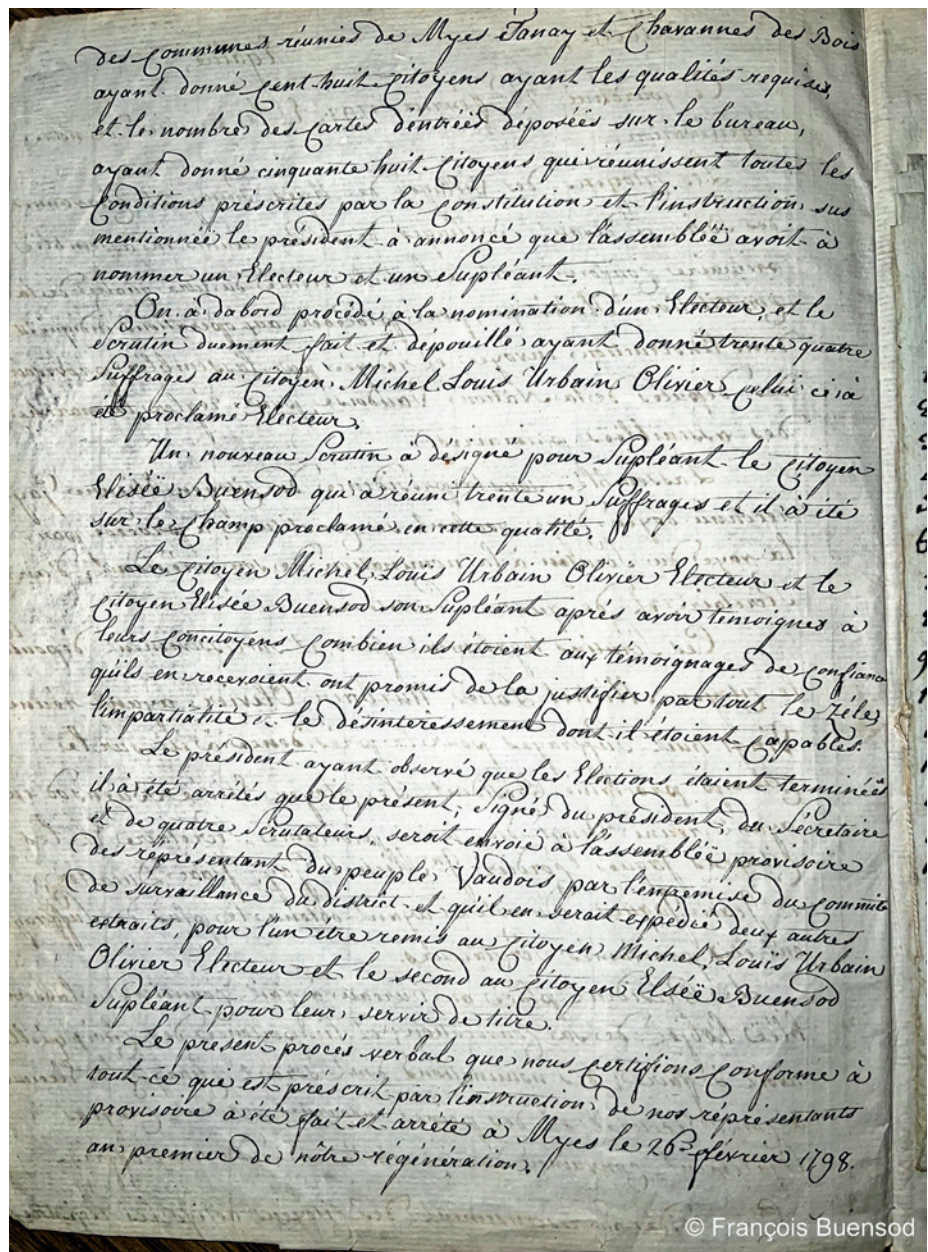 des Communes réunies de Myes Tanay et Chavannes des Bois
ayant donné Cent huit Citoyens ayant les qualités requises,
et le nombre des Cartes d'entréés déposéés sur le bureau,
ayant donné cinquante huit Citoyens qui réunissent toutes les
Conditions préscrites par la Constitution et l'instruction sus
mentionnéë le président à annoncé que l'assembléë avoit à
nommer un Electeur et un Supléant.
On à dabord procédé à la nomination d'un Electeur, et le
Scrutin duement fait et dépouillé ayant donné trente quatre
Suffrages au Citoyen Michel Louis Urbain Olivier Celui ci à
été proclamé Electeur.
Un nouveau Scrutin à désigné pour Supléant le Citoyen
Eliséë Buensod qui à réuni trente un Suffrages et il à été
sur le Champ proclamé en cette qualité.
Le Citoyen Michel Louis Urbain Olivier Electeur et le
Citoyen Elisée Buensod son Supléant aprés avoir temoignes à
leurs Concitoyens Combien ils étoient aux témoignages de Confiance
qu'ils en recevoient ont promis de la justifier par tout le Zéle,
l'impartialité et le désinteressement dont il étoient Capables.
Le président ayant observé que les Elections étaient terminéës
il à été arrétés que le présent, Signé du président, du Sécretaire
et de quatre Scrutateurs, seroit envoié à l'assembléë provisoire
des réprésentant du peuple Vaudois par l'entremise du Commité
de survaillance du district et qu'il en serait expédié deux autres
extraits, pour l'un étre remis au Citoyen Michel Louïs Urbain
Olivier Electeur et le second au Citoyen Elséë Buensod
Supléant pour leur servir de titre.
Le présent procés verbal que nous Certifions Conforme à
tout ce qui est préscrit par l'instruction de nos réprésentants
provisoire à été fait et arrété à Myes le 26e février 1798.
an premier de nôtre régénération.
© François Buensod